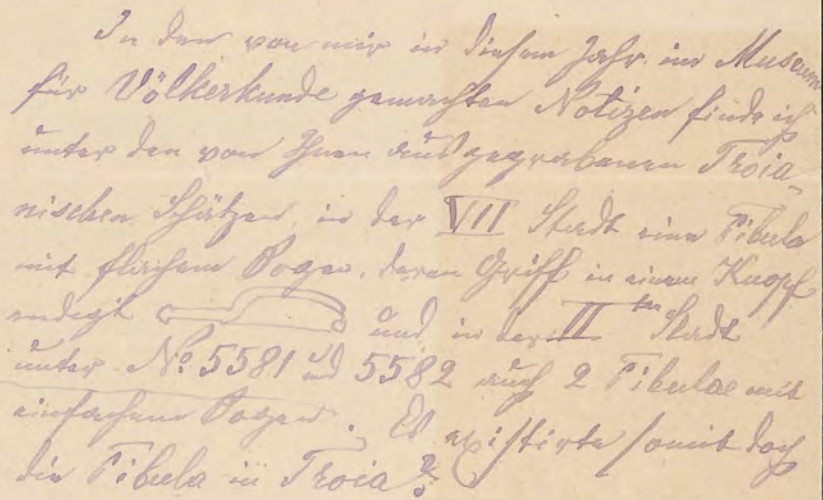 In den von mir in diesem Jahr im Museum
für Völkerkunde gemachten Notizen finde ich
unter den von Ihnen ausgegrabenen Troia-
nischen Schätzen, in der VII Stadt eine Fibula
mit flachem Bogen, deren Griff in einem Knopf
endigt und in der II ten Stadt
unter No 5581 und 5582 auch 2 Fibulae mit
einfachem Bogen. Es existirte somit doch
die Fibula in Troia?